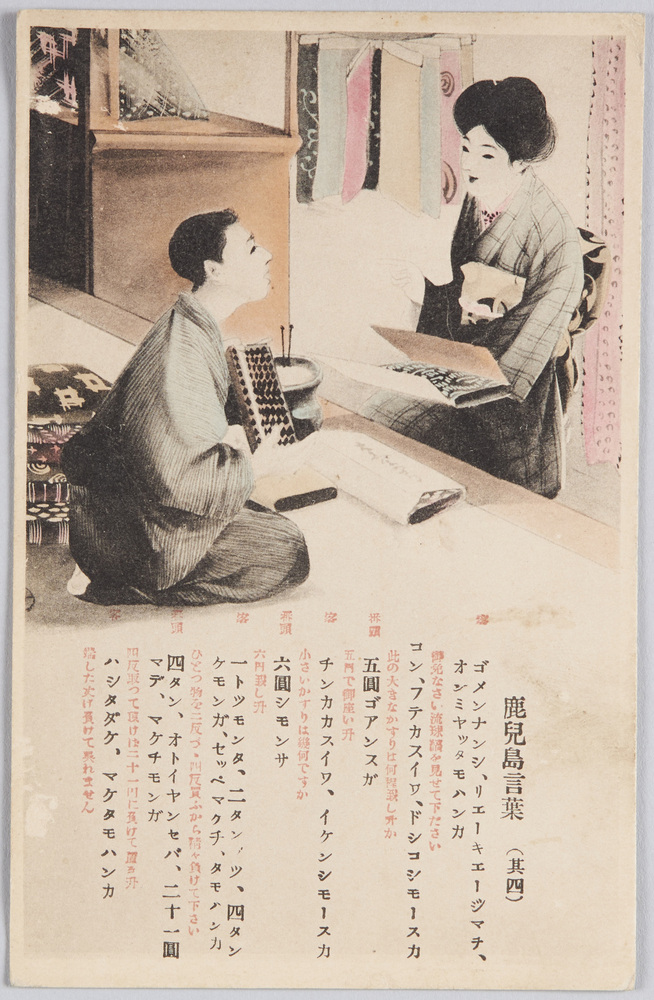 鹿兒島言葉 (其四)
客
ゴメンナンシ、リエーキエーヅマチ、
オンミヤッタモハンカ
御免なさい流球紬を見せて下ださい
コン、フテカスイワ、ドシコシモースカ
此の大きなかすりは何程致し升か
番頭
五圓ゴアンスガ
五円で御座い升
客
チンカカスイワ、イケンシモースカ
小さいかすりは幾何ですか
番頭
六圓シモンサ
六円致し升
客
一トツモンタ、二タンヅツ、四タン
ケモンガ、セッペマクチ、タモハンカ
ひとつ物を二反づゝ四反買ふから精々負けて下さい
番頭
四タン、オトイヤンセバ、二十一圓
マデ、マケチモンガ
四反取つて頂けば二十一円に負けて置き升
客
ハシタダケ、マケタモハンカ
端した丈け負けて呉れません